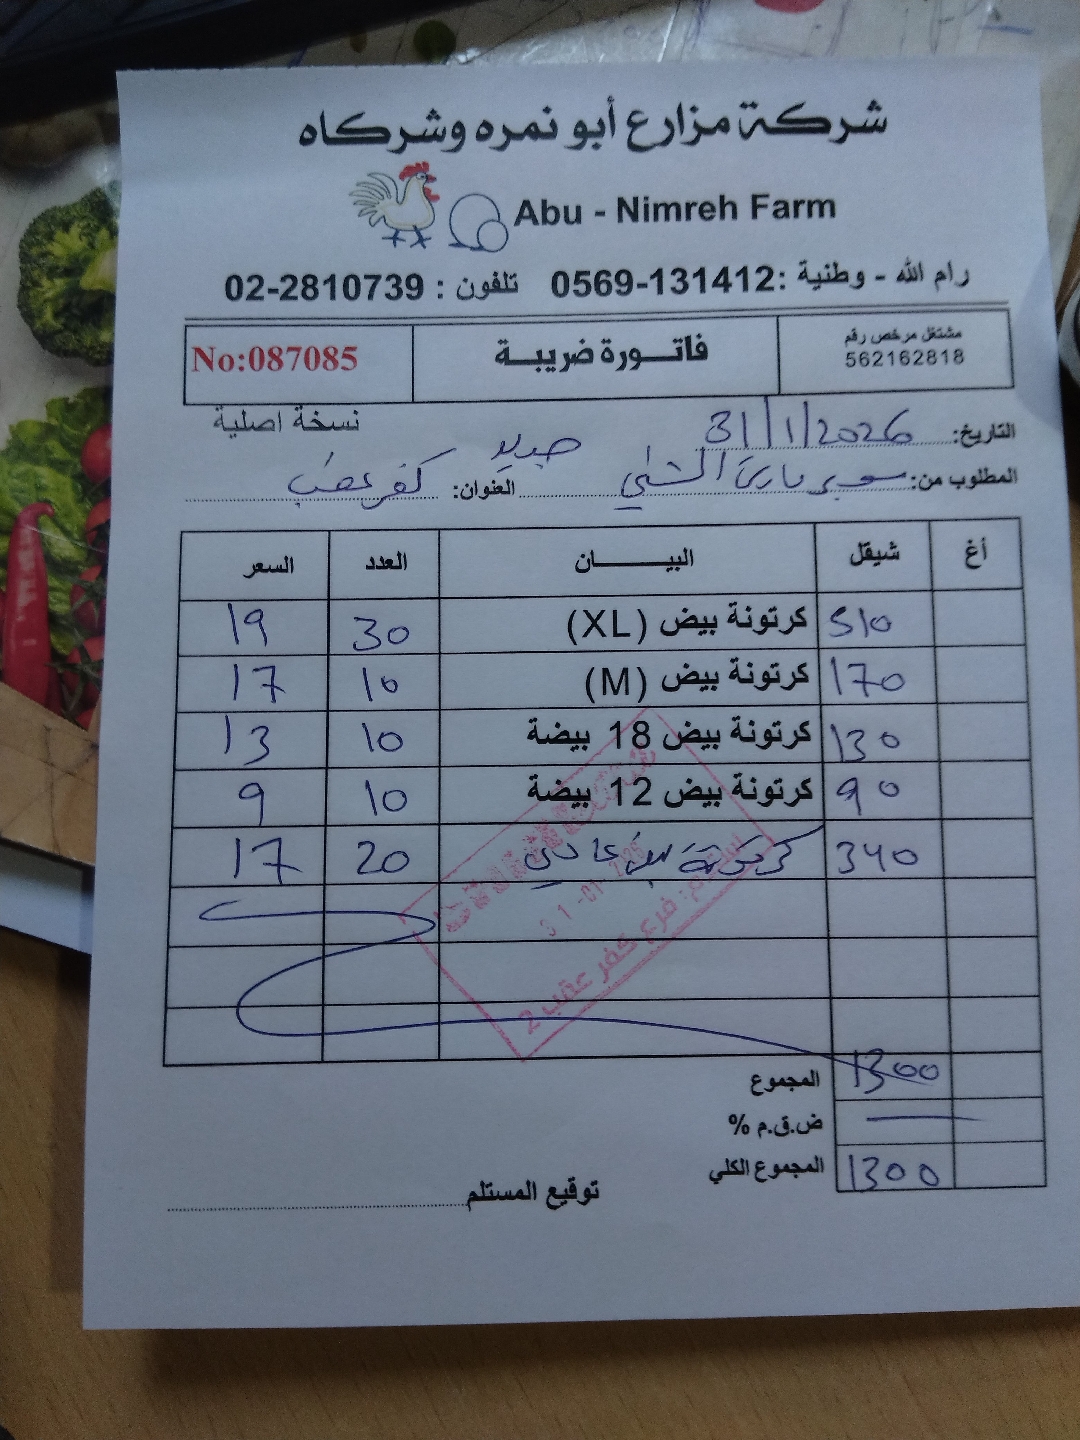 شركة مزارع أبو نمره وشركاه
Abu - Nimreh Farm
رام الله - وطنية :0569-131412 تلفون : 02-2810739
مشتغل مرخص رقم
562162818
فاتـــورة ضريبـة
No:087085
نسخة اصلية
التاريخ: 31/1/2026
المطلوب من: سوبر ماركت الشلي جديد العنوان: كفر عقب
أغ شيقل البيـــــان العدد السعر
510 كرتونة بيض (XL) 30 19
170 كرتونة بيض (M) 10 17
130 كرتونة بيض 18 بيضة 10 13
90 كرتونة بيض 12 بيضة 10 9
340 كرتونة بيض عادي 20 17
31-01-2026
فرع كفر عقب 2
المجموع 1300
ض.ق.م %
المجموع الكلي 1300
توقيع المستلم